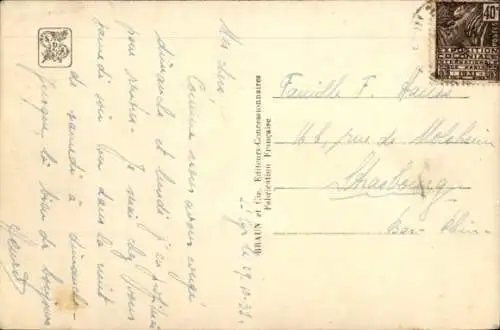 Mes chers
Comme nous avons congé
dimanche et lundi j'en profiterai
pour rentrer. Je serai chez vous
samedi soir ou dans la nuit
de samedi à dimanche.
jusque là bien de bonjours
BRAUN et Cie, Editeurs-Concessionnaires
Fabrication Française
40
EXPOSITION
COLONIALE
INTERNATIONALE
Famille F.
rue de Molsheim
Strasbourg
Bas-Rhin